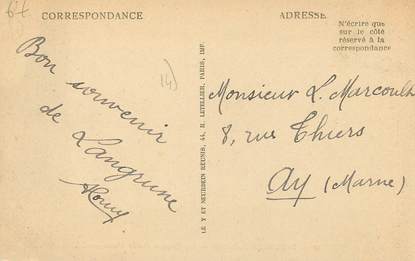 CORRESPONDANCE
ADRESSE
N'écrire que
sur le côté
réservé à la
correspondance
Bon souvenir
de Langrune
LE Y ET NEURDEIN RÉUNIS, 44, R. LETELLIER, PARIS, IMP.
Monsieur L.
8, rue Thiers
Ay (Marne)